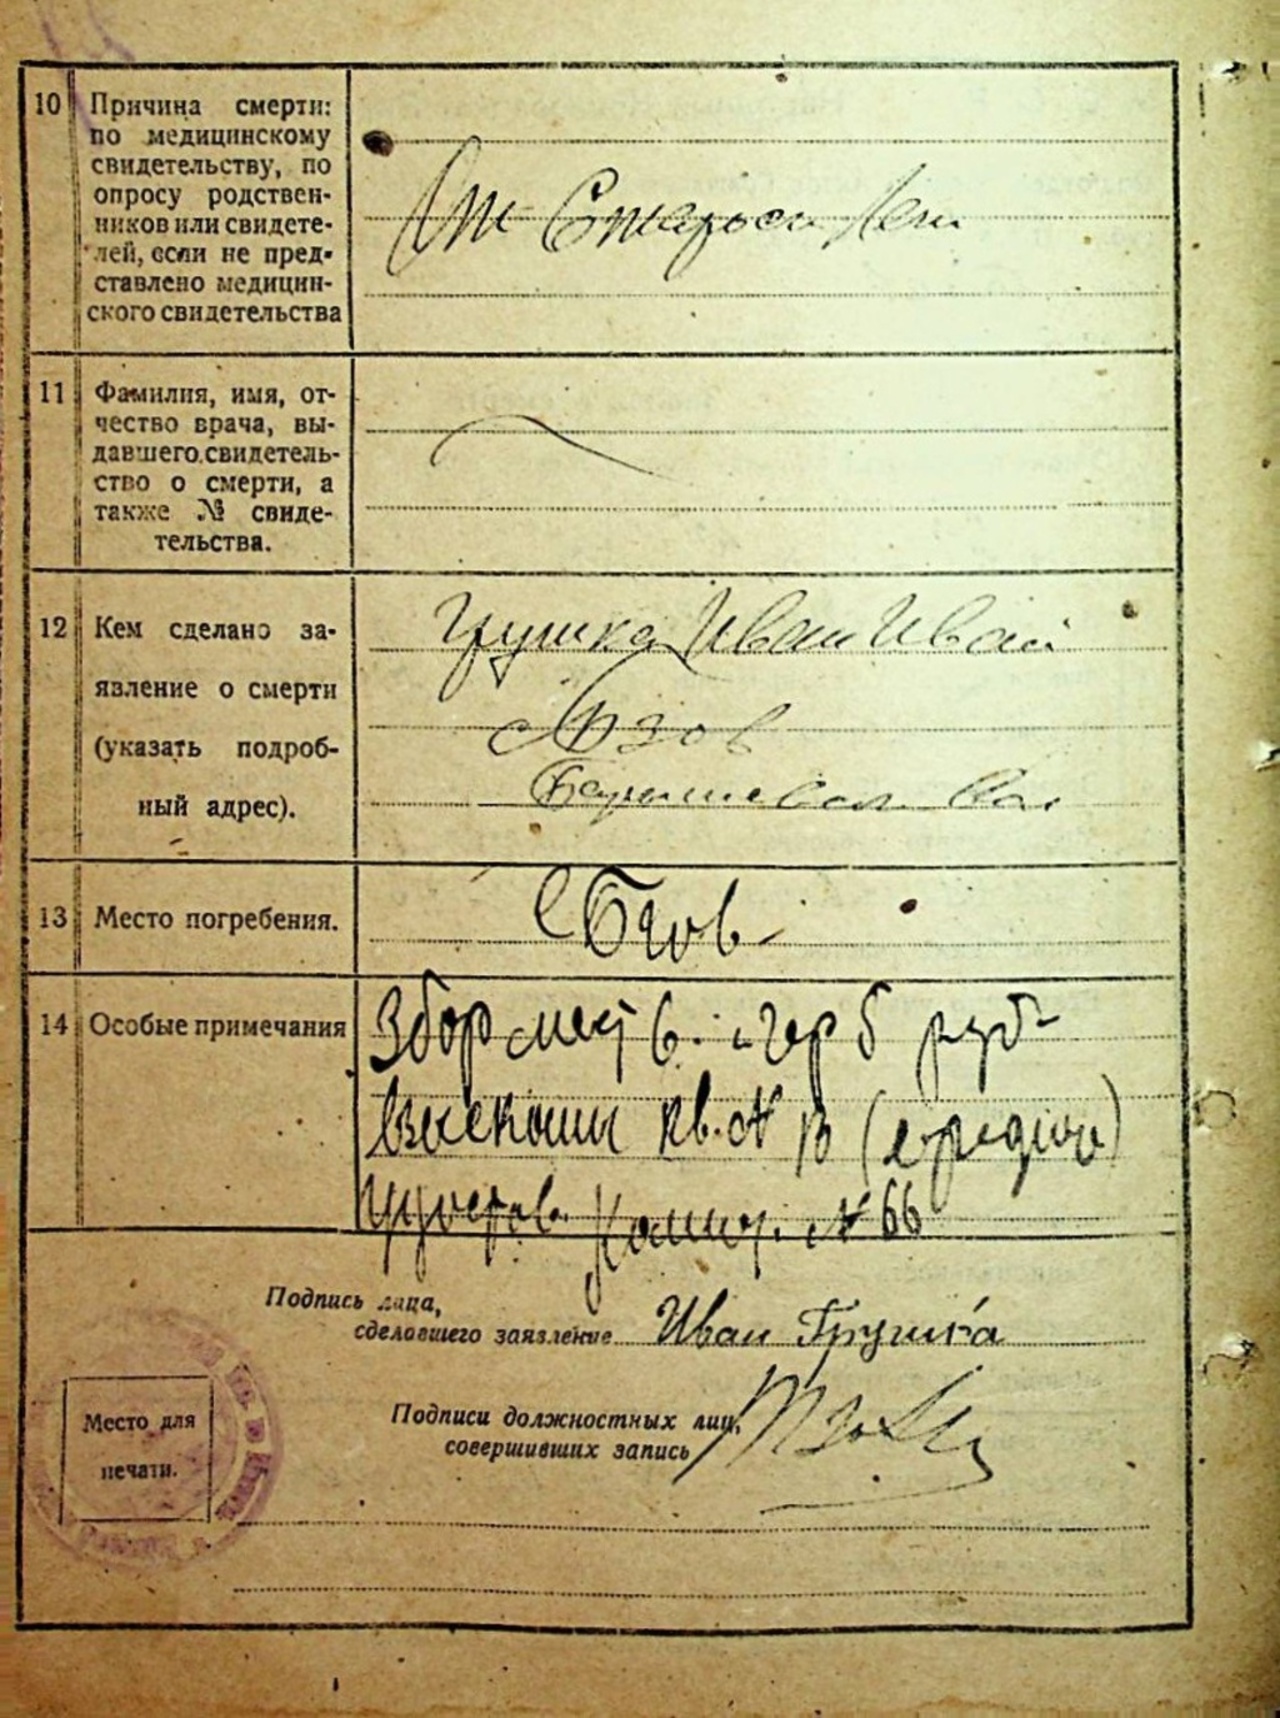 10 Причина смерти:
по медицинскому
свидетельству, по
опросу родствен-
ников или свидете-
лей, если не пред-
ставлено медицин-
ского свидетельства
От Старости лет
11 Фамилия, имя, от-
чество врача, вы-
давшего свидетель-
ство о смерти, а
также № свиде-
тельства.
12 Кем сделано за-
явление о смерти
(указать подроб-
ный адрес).
Грушка Иван Иван
13 Место погребения.
14 Особые примечания
Збор мест 6. гер 5 руб
кв. №
№ 66
Подпись лица,
сделавшего заявление Иван Грушка
Место для
печати.
Подписи должностных лиц,
совершивших запись